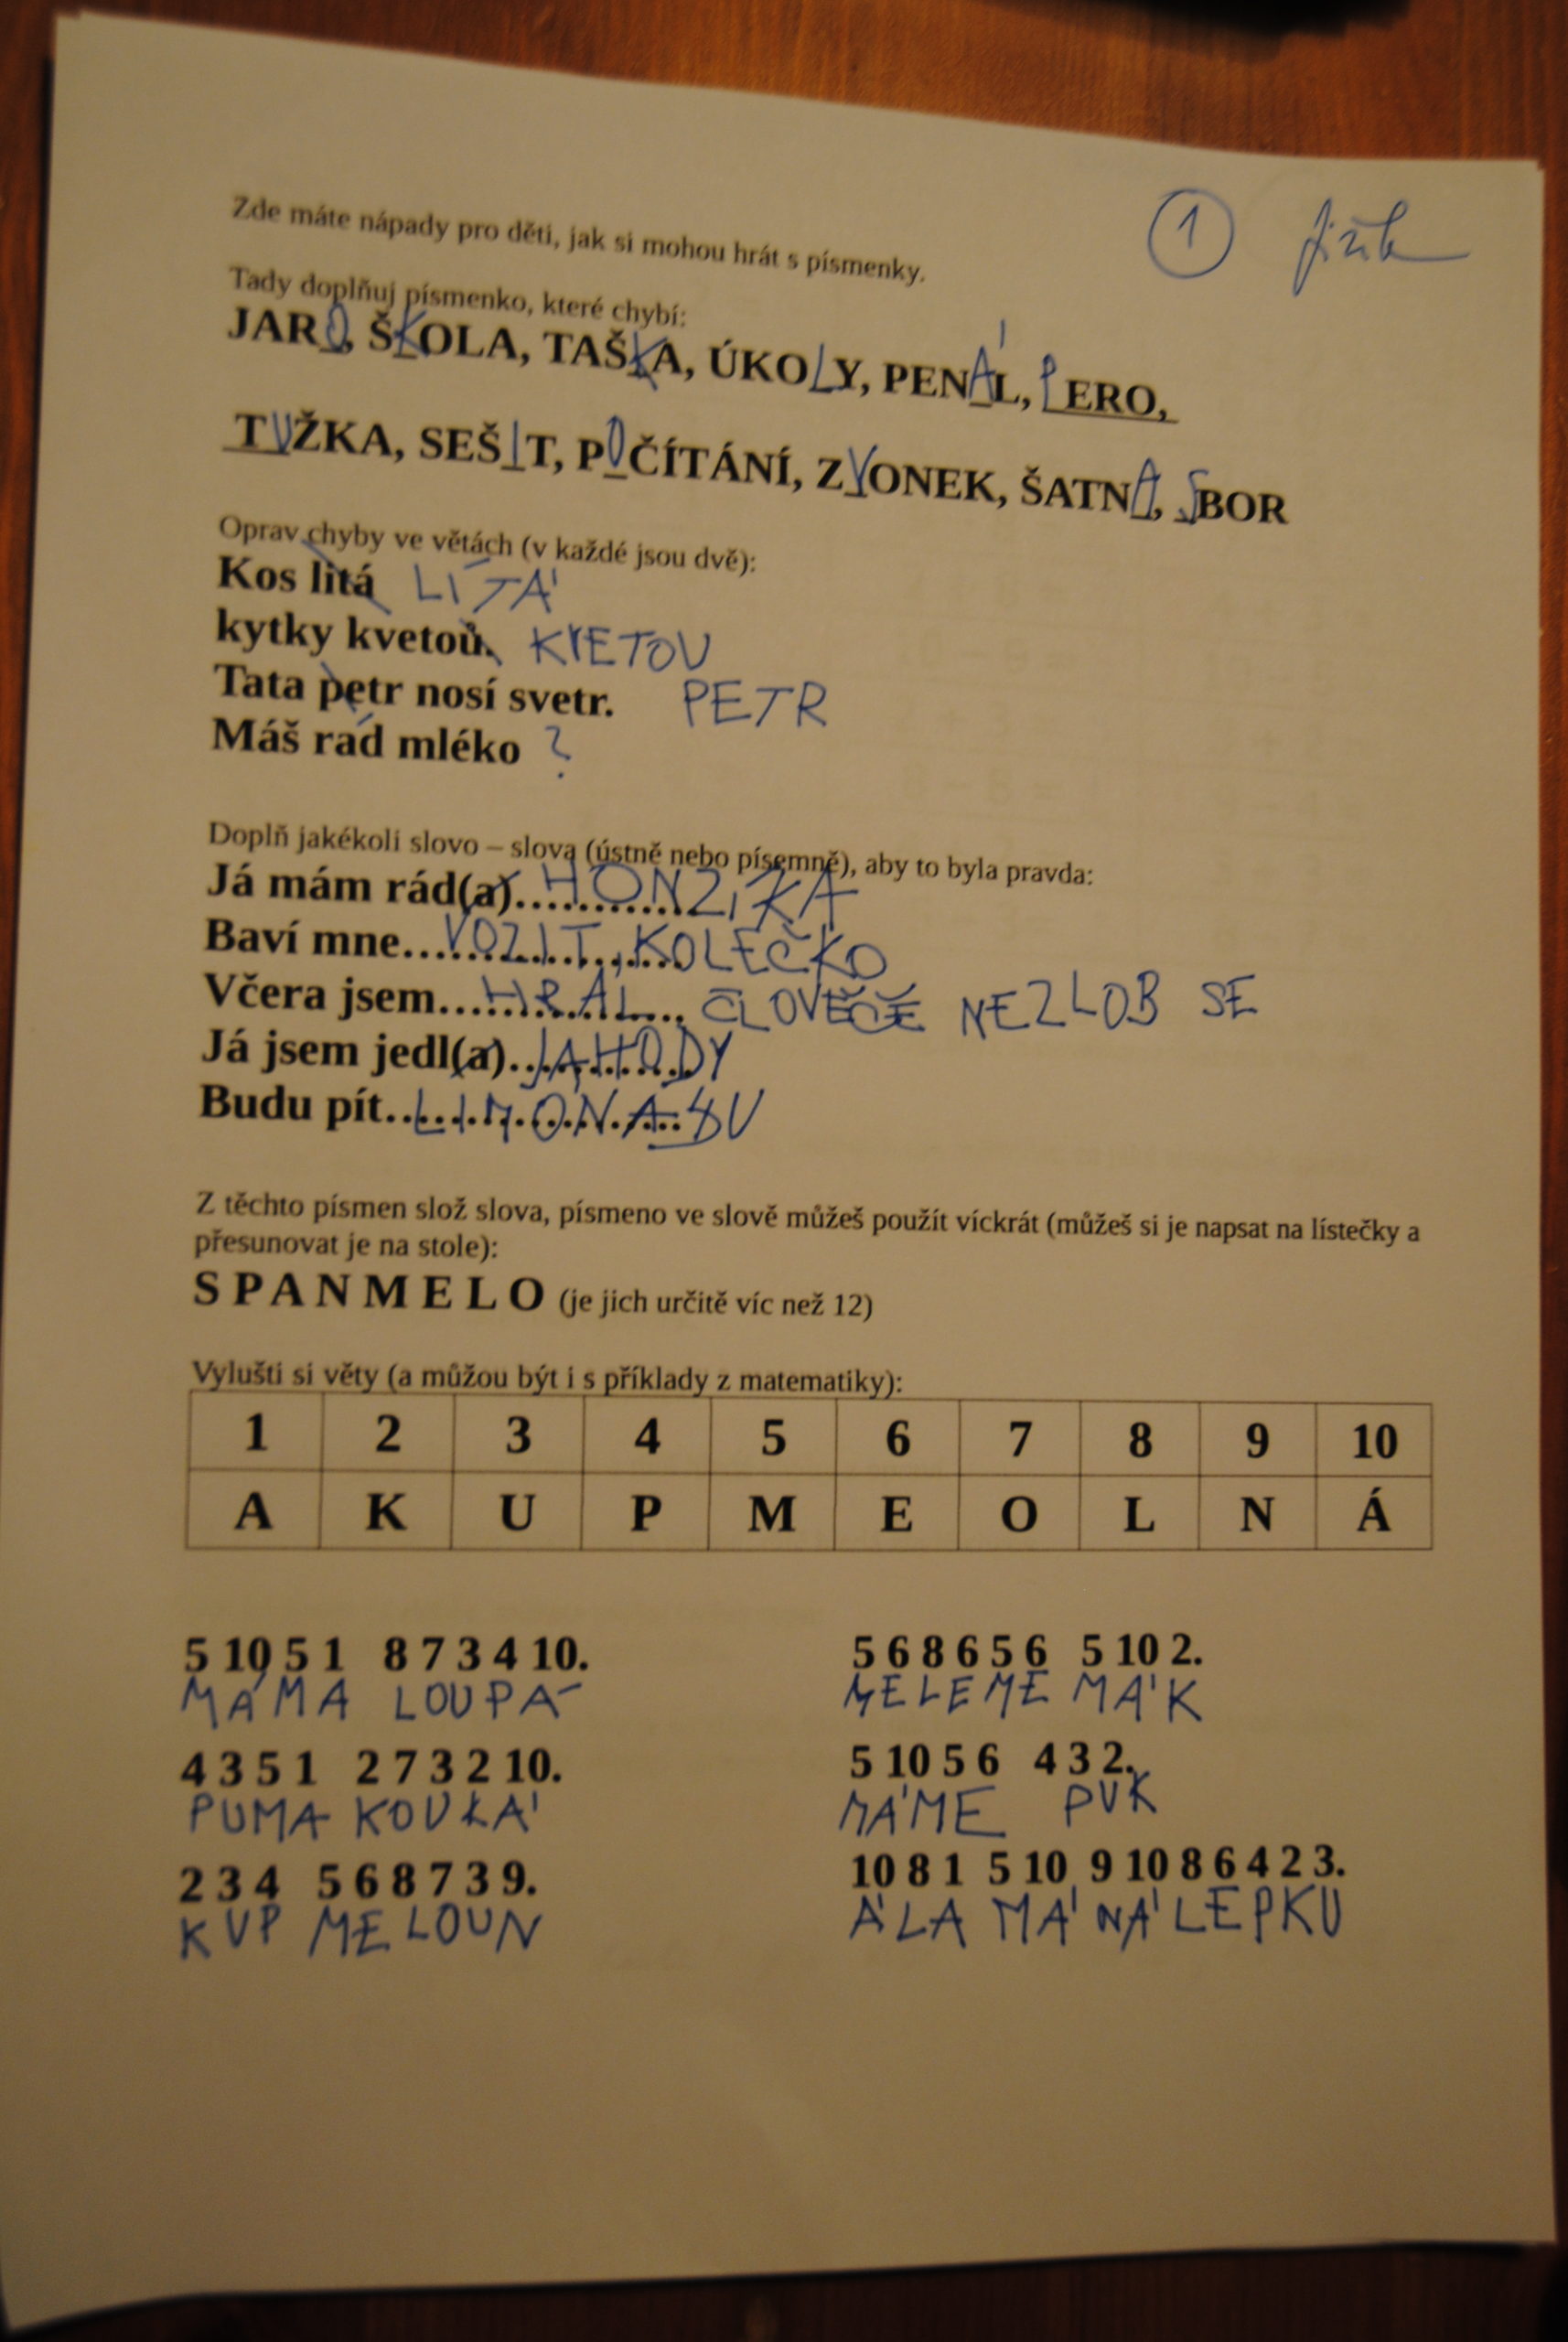 ① Jiřík
Zde máte nápady pro děti, jak si mohou hrát s písmenky.
Tady doplňuj písmenko, které chybí:
JARO, ŠKOLA, TAŠKA, ÚKOLY, PENÁL, PERO,
TUŽKA, SEŠIT, POČÍTÁNÍ, ZVONEK, ŠATNA, SBOR
Oprav chyby ve větách (v každé jsou dvě):
Kos litá LÍTÁ
kytky kvetoů. KVETOU
Tata petr nosí svetr. PETR
Máš rád mléko ?
Doplň jakékoli slovo – slova (ústně nebo písemně), aby to byla pravda:
Já mám rád(a)............ HONZÍKA
Baví mne.................. VOZIT KOLEČKO
Včera jsem................ HRÁL ČLOVĚČE NEZLOB SE
Já jsem jedl(a)............ JAHODY
Budu pít.................... LIMONADU
Z těchto písmen slož slova, písmeno ve slově můžeš použít víckrát (můžeš si je napsat na lístečky a
přesunovat je na stole):
S P A N M E L O (je jich určitě víc než 12)
Vylušti si věty (a můžou být i s příklady z matematiky):
1 2 3 4 5 6 7 8 9 10
A K U P M E O L N Á
5 10 5 1 8 7 3 4 10. 5 6 8 6 5 6 5 10 2.
MÁMA LOUPÁ MELEME MÁK
4 3 5 1 2 7 3 2 10. 5 10 5 6 4 3 2.
PUMA KOUKÁ MÁME PUK
2 3 4 5 6 8 7 3 9. 10 8 1 5 10 9 10 8 6 4 2 3.
KUP MELOUN ÁLA MÁ NÁLEPKU